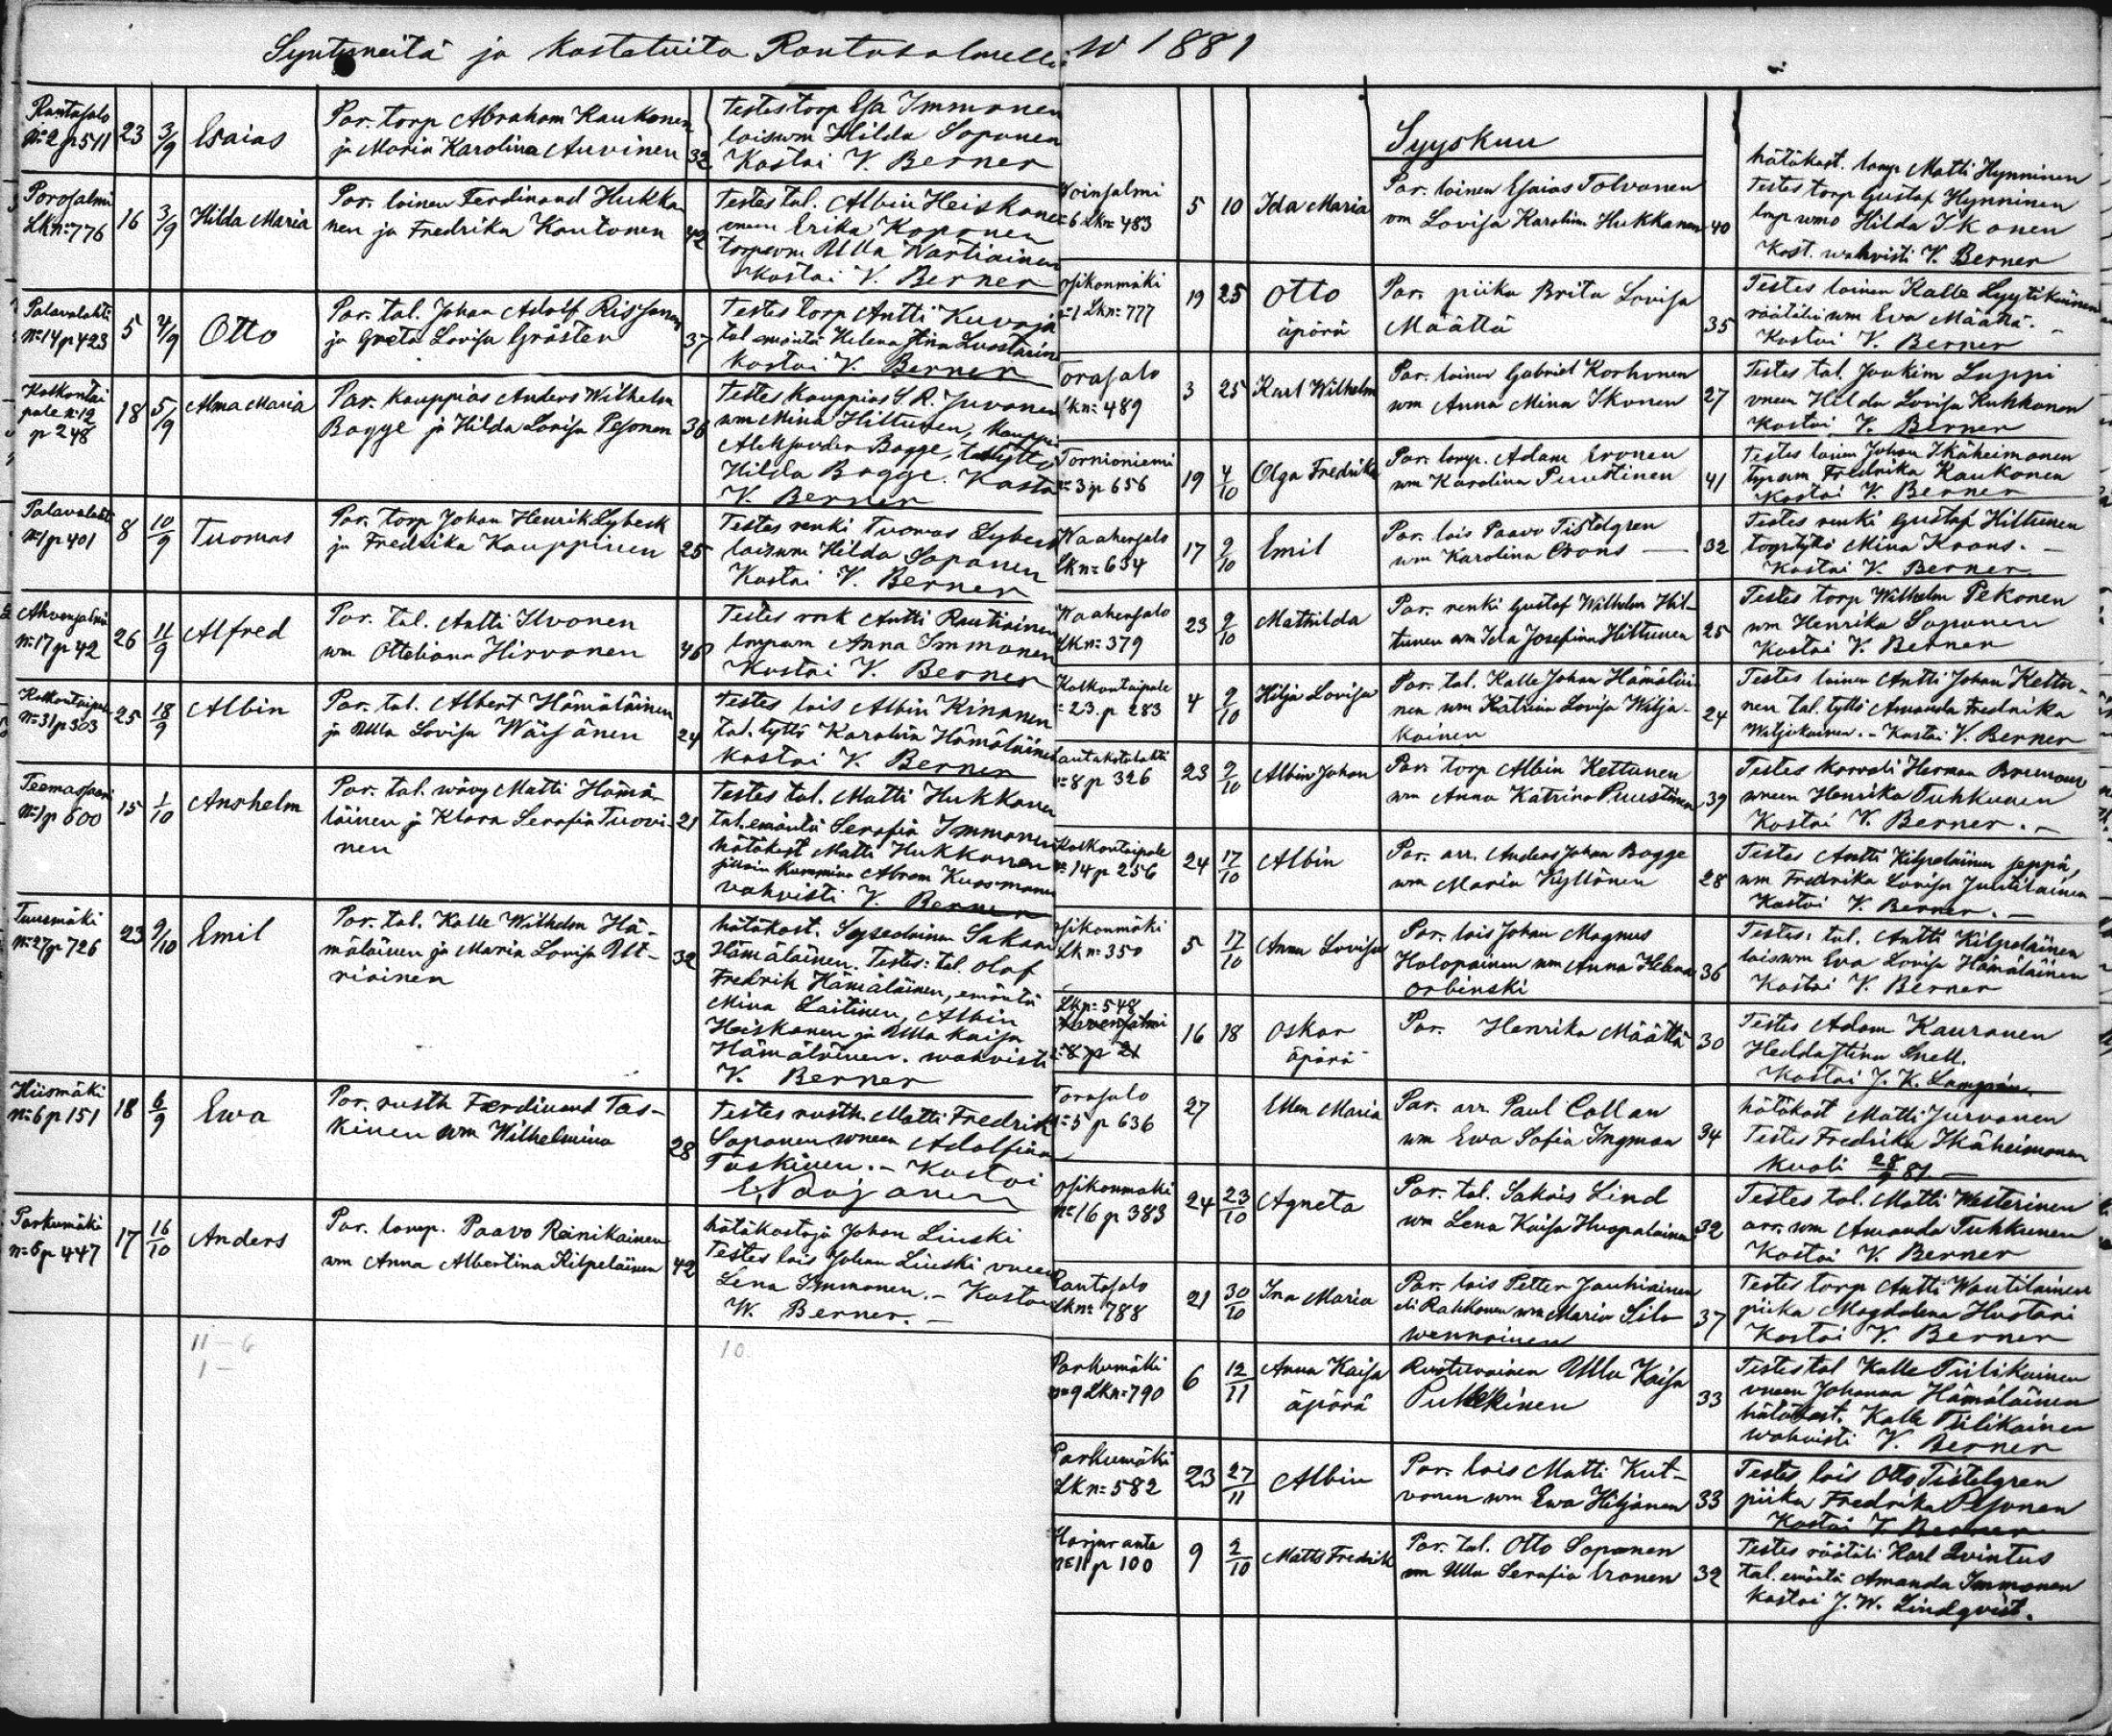 Syntyneitä ja kastetuita Rantasalmella w 1881
Rantasalo
No 2 p 511
23
3/9
Esaias
Par. torp Abraham Kaukonen
ja Maria Karolina Auvinen
32
Testes torp Esa Immonen
loiswm Hilda Soponen
Kastoi V. Berner
Porosalmi
Lkn: 776
16
3/9
Hilda Maria
Par. loinen Ferdinand Hukka
nen ja Fredrika Kautonen
42
Testes tal. Albin Heiskanen
vneen Erika Koponen
torpvm Ulla Wartiainen
Kastoi V. Berner
Palavalahti
No 14 p 423
5
4/9
Otto
Par. tal. Johan Adolf Rissanen
ja Greta Lovisa Grôsten
37
Testes torp Antti Kuvaja
tal emäntä Helena Stina Luostarin
Kastoi V. Berner
Kolkontai
pale n:12
p 248
18
5/9
Alma Maria
Par. Kauppias Anders Wilhelm
Bagge ja Hilda Lovisa Pesonen
36
Testes Kauppias S. R. Juvonen
wm Mina Hiltunen, Kauppi
Aleksander Bagge, tal tyttö
Hilda Bagge. Kasto
V. Berner
Palavalahti
No 1 p 401
8
10/9
Tuomas
Par. torp Johan Henrik Lybeck
ja Fredrika Kauppinen
25
Testes renki Tuomas Lybeck
loiswm Hilda Soponen
Kastoi V. Berner
Ahvensalmi
No 17 p 42
26
11/9
Alfred
Par. tal. Antti Ilvonen
wm Otteliana Hirvonen
46
Testes Antti Rautiainen
lmpswm Anna Immonen
Kastoi V. Berner
Kolkontaipale
No 31 p 303
25
18/9
Albin
Par. tal. Albert Hämäläinen
ja Ulla Lovisa Wäisänen
24
Testes lois Albin Kinanen
tal. tyttö Karolina Hämäläinen
Kastoi V. Berner
Teemassaari
No 1 p 600
15
1/10
Anshelm
Par. tal. wävy Matti Hämä-
läinen ja Klara Serafia Tuovi-
nen
21
Testes tal. Matti Hukkanen
tal. emäntä Serafia Immonen
hätäkast Matti Hukkonen
Kummina Abram Kuosmanen
vahvisti V. Berner
Tuusmäki
No 27 p 726
23
9/10
Emil
Par. tal. Kalle Wilhelm Hä-
mäläinen ja Maria Lovisa Ut-
riainen
32
hätäkast. Sakari
Hämäläinen. Testes: tal. Olof
Fredrik Hämäläinen, emäntä
Mina Laitinen, Albin
Heiskanen ja Ulla Kaisa
Hämäläinen. wahvisti
V. Berner
Hiismäki
No 6 p 151
18
6/9
Ewa
Par. rusth Ferdinand Tas-
kinen wm Wilhelmina
28
Testes rusth. Matti Fredrik
Soponen wneen Adolfina
Taskinen. - Kastoi
Parkumäki
No 6 p 447
17
16/10
Anders
Par. lamp. Paavo Reinikainen
wm Anna Albertina Kilpeläinen
42
hätäkastoja Johan Linski
Testes lois Johan Linski vneen
Lena Immonen. - Kastoi
W. Berner. -
11 - 6
1 -
10.
Syyskuu
oinsalmi
6 Lkn: 483
5
10
Ida Maria
Par. loinen Esaias Tolvanen
vm Lovisa Karolina Hukkanen
40
hätäkast. lamp. Matti Hynninen
Testes torp Gustaf Hynninen
lmp wmo Hilda Ikonen
Kast. wahvisti V. Berner
Osikonmäki
n:1 Lkn: 777
19
25
Otto
äpärä
Par. piika Brita Lovisa
Määttä
35
Testes loinen Kalle Lyytikäinen
räätälin wm Eva Määttä. -
Kastoi V. Berner
Torasalo
Lkn: 489
3
25
Karl Wilhelm
Par. loinen Gabriel Korhonen
wm Anna Mina Ikonen
27
Testes tal. Joakim Luppi
vneen Hilda Lovisa Kukkonen
Kastoi V. Berner
Tornioniemi
n: 3 p 656
19
4/10
Olga Fredrika
Par. lamp. Adam Eronen
wm Karolina Puustinen
41
Testes loinen Johan Ikäheimonen
Fredrika Kaukonen
Kastoi V. Berner
Waahersalo
Lkn: 634
17
9/10
Emil
Par. lois Paavo Tistelgren
wm Karolina Crons
32
Testes renki Gustaf Hiltunen
torptyttö Mina Krans. -
Kastoi V. Berner.
Waahersalo
Lkn: 379
23
9/10
Mathilda
Par. renki Gustaf Wilhelm Hil-
tunen wm Ida Josefina Hiltunen
25
Testes torp Wilhelm Pekonen
wm Henrika Soponen
Kastoi V. Berner
Kolkontaipale
: 23 p 283
4
9/10
Hilja Lovisa
Par. tal. Kalle Johan Hämäläi-
nen wm Katrina Lovisa Wilja-
kainen
24
Testes loinen Antti Johan Kettu-
nen tal. tyttö Amanda Fredrika
Wiljakainen. - Kastoi V. Berner
Rantakotalahti
n:8 p 326
23
9/10
Albin Johan
Par. torp Albin Kettunen
wm Anna Katrina Puustinen
39
Testes Herman
wneen Henrika Tuhkunen
Kastoi V. Berner. -
Kolkontaipale
n: 14 p 256
24
17/10
Albin
Par. arr. Anders Johan Bagge
wm Maria Kyllönen
28
Testes Antti Kilpeläinen seppä,
wm Fredrika Lovisa Juutilainen
Kastoi V. Berner. -
Osikonmäki
Lkn: 350
5
17/10
Anna Lovisa
Par. lois Johan Magnus
Holopainen wm Anna Helena
Orbinski
36
Testes: tal. Antti Kilpeläinen
loiswm Eva Lovisa Hämäläinen
Kastoi V. Berner
Lkn: 548
Ahvensalmi
n:8 p 21
16
18
Oskar
äpärä
Par. Henrika Määttä
30
Testes Adam Kauranen
Hedda Stina Snell.
Kastoi J. K. Lampén.
Torasalo
n: 5 p 636
27
Ellen Maria
Par. arr. Paul Collan
wm Ewa Sofia Ingman
34
hätäkast Matti Jurvanen
Testes Fredrika Ikäheimonen
Kuoli 28/9 81. -
Osikonmäki
n: 16 p 383
24
23/10
Agneta
Par. tal. Sakris Lind
wm Lena Kaisa Huopalainen
32
Testes tal. Matti Westerinen
arr. wm Amanda Tuhkunen
Kastoi V. Berner
Rantasalo
Lkn: 788
21
30/10
Ina Maria
Par. lois Petter Jauhiainen
eli Rahkonen wm Maria Sila
wennoinen
37
Testes torp Antti Wautilainen
piika Magdalena Hustari
Kastoi V. Berner
Parkumäki
n:9 Lkn: 790
6
12/11
Anna Kaisa
äpärä
Ruotivainen Ulla Kaisa
Pulkkinen
33
Testes tal Kalle Tiilikainen
vneen Johanna Hämäläinen
hätäkast. Kalle Tiilikainen
wahvisti V. Berner
Parkumäki
Lkn: 582
23
27/11
Albin
Par. lois Matti Kut-
vonen wm Ewa Hiljanen
33
Testes lois Otto Tistelgren
piika Fredrika Pesonen
Kastoi V. Berner
Harjuranta
n: 11 p 100
9
2/10
Matts Fredrik
Par. tal. Otto Soponen
wm Ulla Serafia Eronen
32
Testes räätäli Karl Qvintus
tal. emäntä Amanda Immonen
Kastoi J. W. Lindqvist.